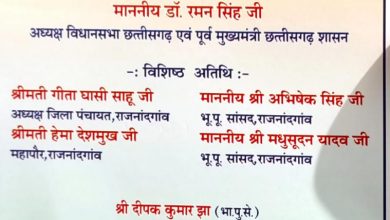 माननीय डॉ. रमन सिंह जी
अध्यक्ष विधानसभा छत्तीसगढ़ एवं पूर्व मुख्यमंत्री छत्तीसगढ़ शासन
-: विशिष्ठ अतिथि :-
श्रीमती गीता घासी साहू जी माननीय श्री अभिषेक सिंह जी
अध्यक्ष जिला पंचायत,राजनांदगांव भू.पू. सांसद,राजनांदगांव
श्रीमती हेमा देशमुख जी माननीय श्री मधुसूदन यादव जी
महापौर,राजनांदगांव भू.पू. सांसद,राजनांदगांव
श्री दीपक कुमार झा (भा.पु.से.)